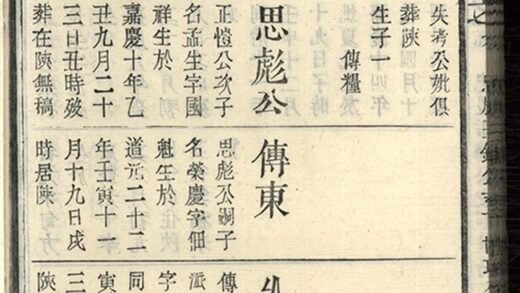 失考公妣俱
葬陝
生子一
傳糧
思彪公
正愷公次子
名孟生字國
祥生於
嘉慶十年乙
丑九月二十
三日丑時歿
葬在陝無稿
傳東
思彪公嗣子
名榮慶字佃
魁生於
道光二十二
年壬寅十一
月十九日戌
時居陝
傳
派
字
同
寅
三
陝